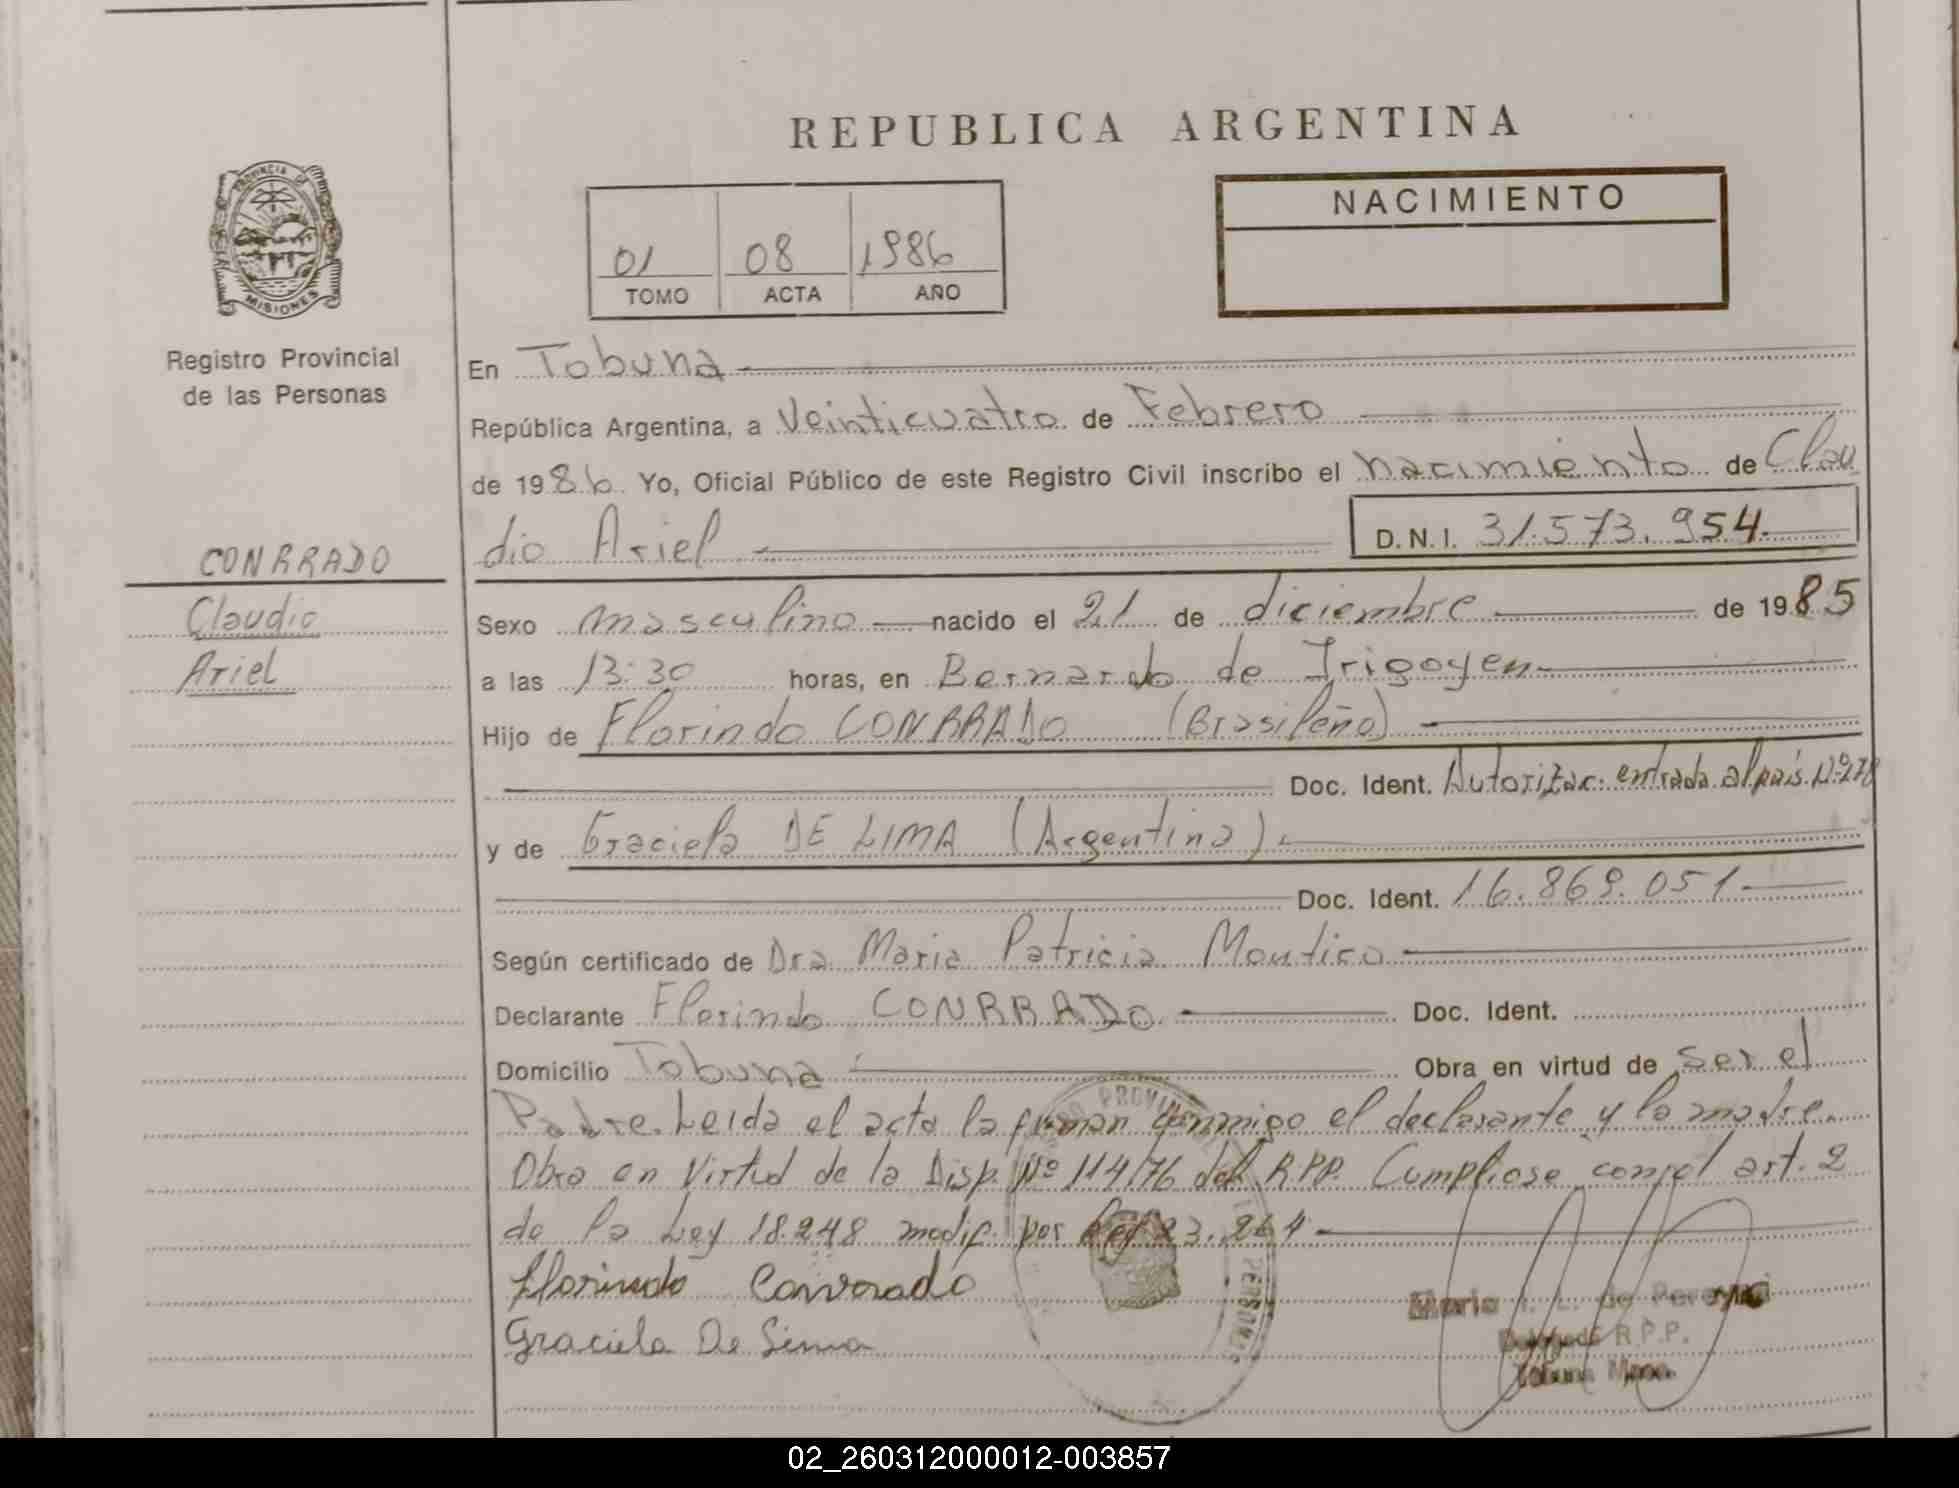 REPUBLICA ARGENTINA
PROVINCIA DE
MISIONES
Registro Provincial
de las Personas
01 08 1986
TOMO ACTA AÑO
NACIMIENTO
En Tobuna
República Argentina, a Veinticuatro de Febrero
de 1986 Yo, Oficial Público de este Registro Civil inscribo el nacimiento de Clau
dio Ariel D.N.I. 31.573.954.
CONRRADO
Claudio
Ariel
Sexo masculino nacido el 21 de diciembre de 1985
a las 13:30 horas, en Bernardo de Irigoyen
Hijo de Florindo CONRRADO (Brasileño)
Doc. Ident. Autorizac. entrada al país Nº 278
y de Graciela DE LIMA (Argentina).
Doc. Ident. 16.869.051
Según certificado de Dra. Maria Patricia
Declarante Florindo CONRRADO Doc. Ident.
Domicilio Tobuna Obra en virtud de ser el
Padre. Leida el acta la firman conmigo el declarante y la madre.
Obra en Virtud de la Disp. Nº 114/76 del R.P.P. Cumpliose con el art. 2
de la Ley 18.248 modif. por Ley 23.264
Florindo Conrrado
Graciela De Lima
Maria de Pereyra
R.P.P.
Tobuna Mnes.
02_260312000012-003857